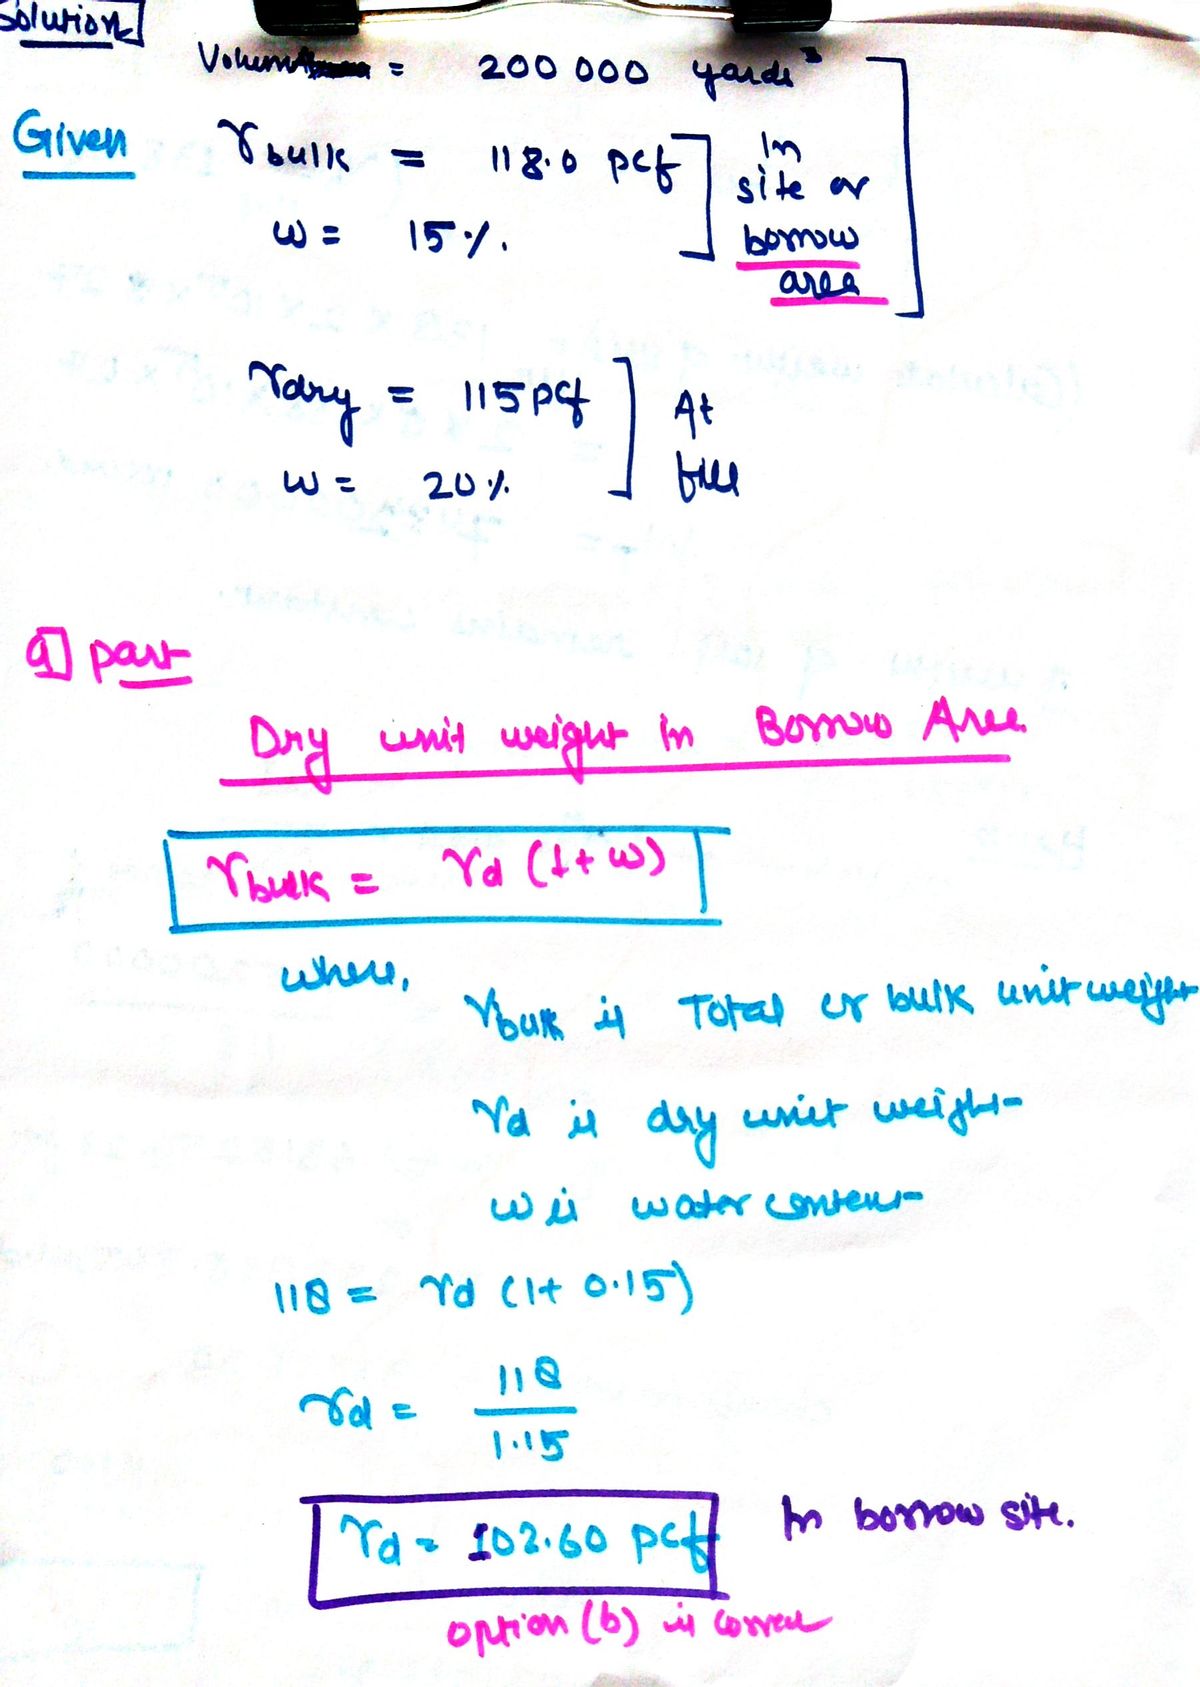 Solution
Volume = 200 000 yards³
Given γbulk = 118.0 pcf
w = 15%.
In site or borrow area
γdry = 115 pcf
w = 20%.
At fill
a] part
Dry unit weight in Borrow Area
γbulk = γd (1+w)
where,
γbulk is Total or bulk unit weight
γd is dry unit weight
w is water content
118 = γd (1+ 0.15)
γd = 118
1.15
γd = 102.60 pcf In borrow site.
option (b) is correct